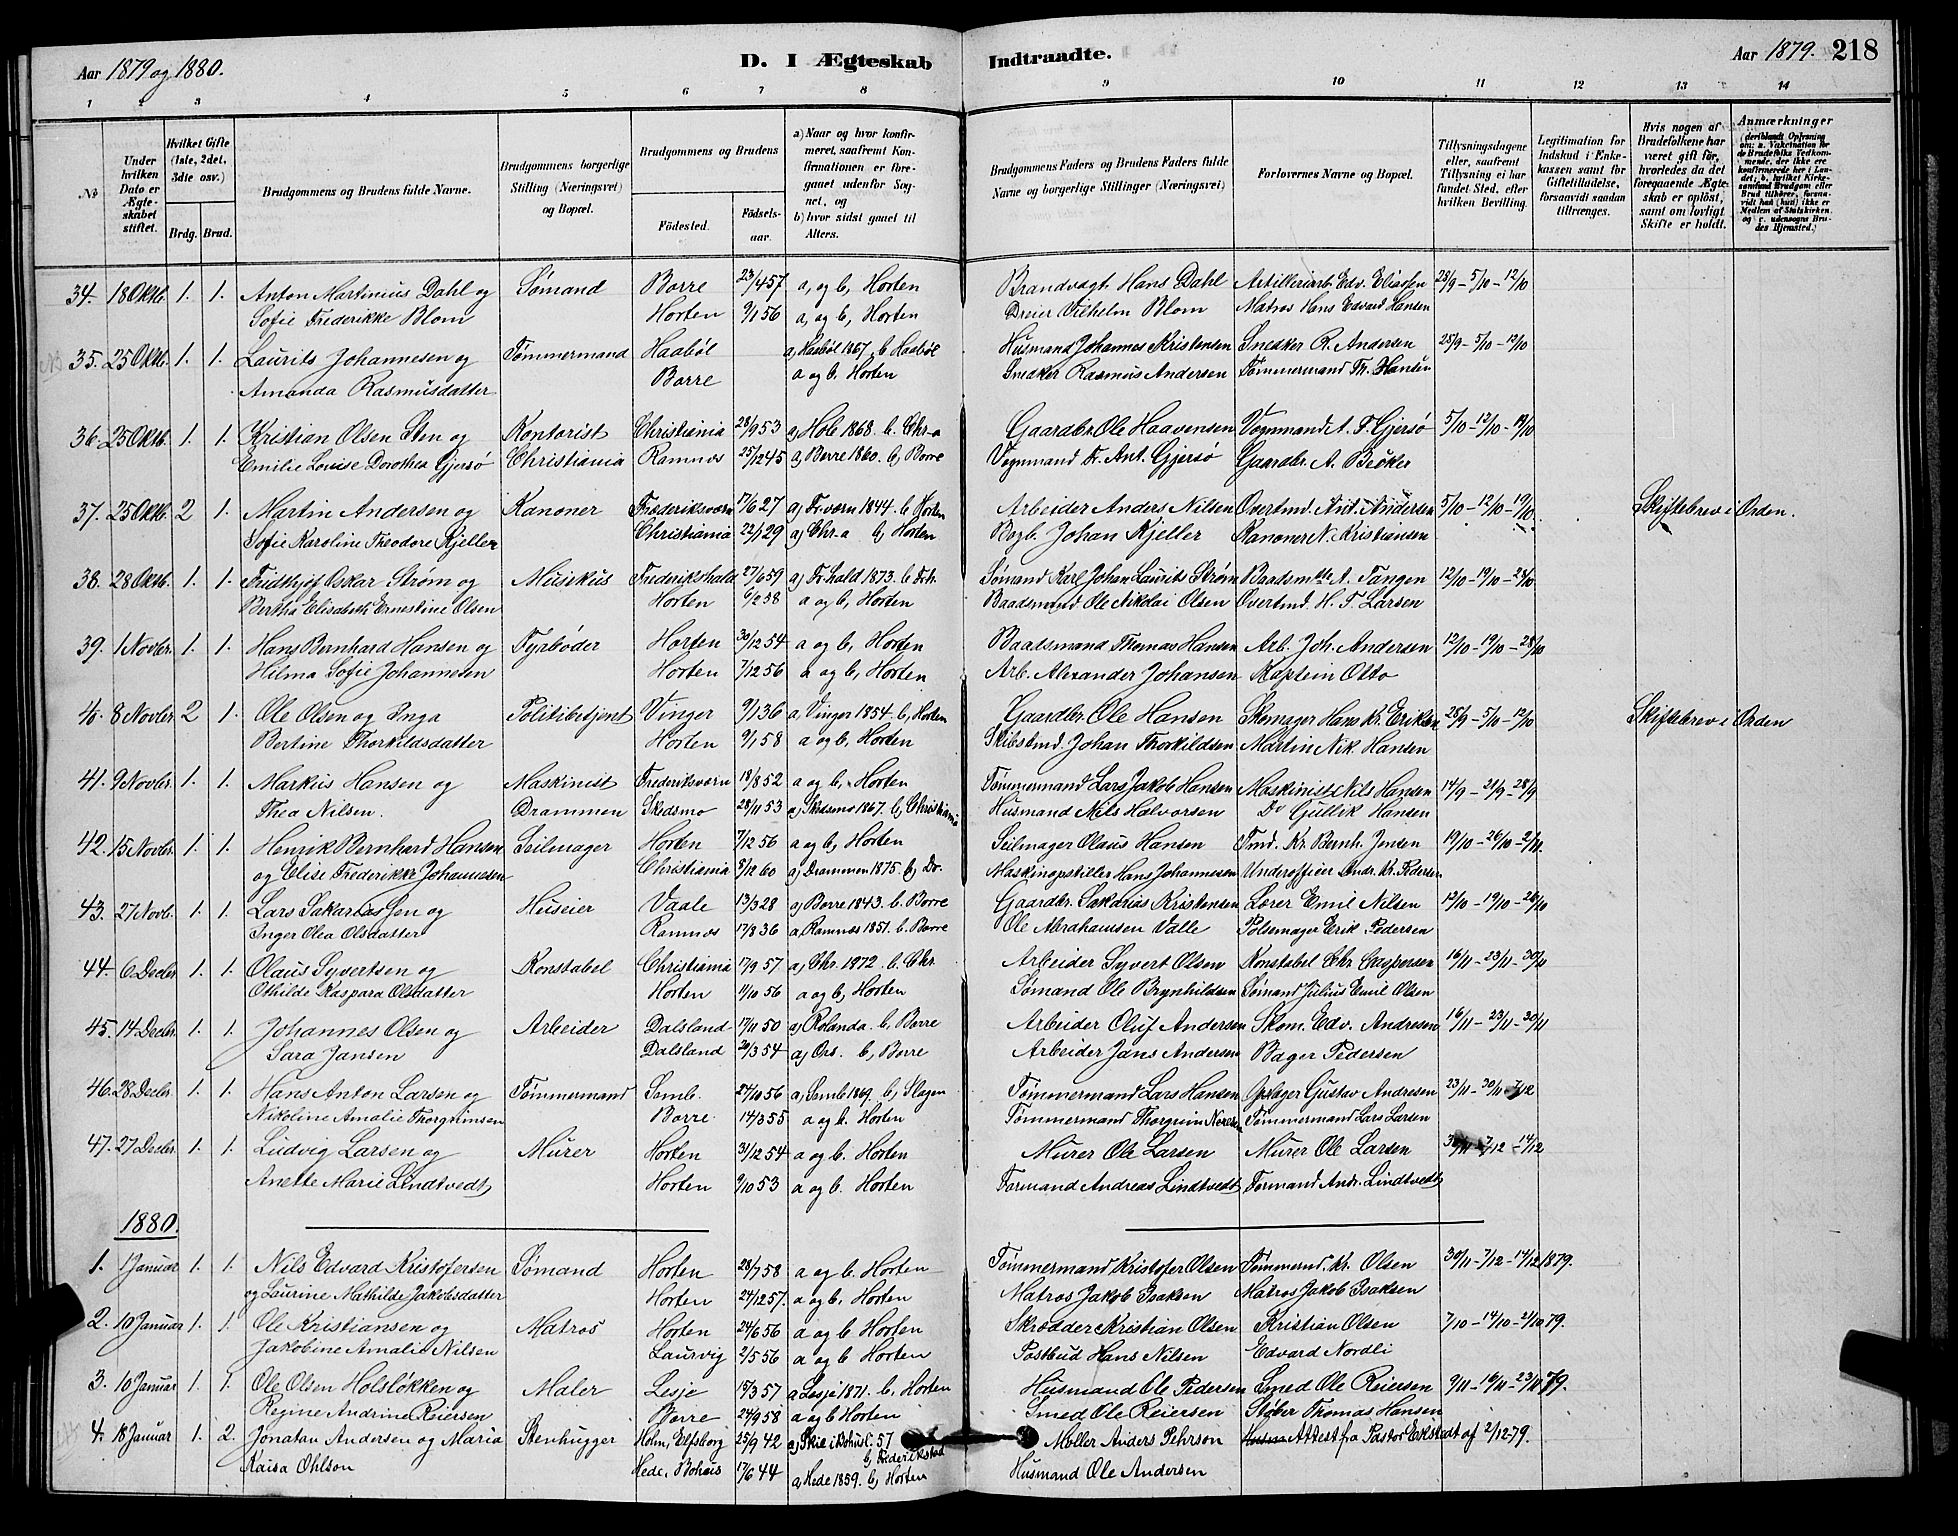 Aar 1879 og 1880. D. I Ægteskab Indtraadte. Aar 1879. 218
1 2 3 4 5 6 7 8 9 10 11 12 13 14
No Under hvilken Dato er Ægteskabet stiftet. Hvilket Gifte (1ste, 2det, 3die osv.) Brdg. Brud. Brudgommens og Brudens fulde Navne. Brudgommens borgerlige Stilling (Næringsvei) og Bopæl. Brudgommens og Brudens Fødested. Fødselsaar. a) Naar og hvor konfirmeret, saafremt Konfirmationen er foregaaet udenfor Sognet, og b) hvor sidst gaaet til Alters. Brudgommens Faders og Brudens Faders fulde Navne og borgerlige Stillinger (Næringsvei) Forlovernes Navne og Bopæl. Tillysningsdagene eller, saafremt Tillysning ei har fundet Sted, efter hvilken Bevilling. Legitimation for Indskud i Enkekassen samt for Giftetilladelse, forsaavidt saadan tiltrænges. Hvis nogen af Brudefolkene har været gift før, hvorledes da det foregaaende Ægteskab er opløst, samt om lovligt Skifte er holdt. Anmærkninger (deriblandt Oplysning om: a. Vakcination for de Brudefolks Vedkommende, der ikke ere konfirmerede her i Landet, b. hvilket Kirkesamfund Brudgom eller Brud tilhører, forsaavidt han (hun) ikke er Medlem af Statskirken og c. udensogns Brudes Hjemsted.)
34. 18 Oktb. 1. 1. Anton Martinius Dahl og Sømand Borre 23/4 57 a, og b, Horten Brandvagt Hans Dahl Artilleriarb. Edv. Eliassen 28/9 - 5/10 - 12/10
Sofie Frederikke Blom Horten 9/1 56 a, og b, Horten Dreier Vilhelm Blom Matros Hans Edvard Hansen
35. 25 Oktb. 1. 1. Laurits Johannesen og Tømmermand Haabøl a, Haabøl 1867, b Haabøl Husmand Johannes Kristensen Snedker R. Andersen 28/9 - 5/10 - 12/10
Amanda Rasmusdatter Borre a og b. Horten Snedker Rasmus Andersen Tømmermand Th. Hansen
36. 25 Oktb. 1. 1. Kristian Olsen Sten og Kontorist Christiania 28/9 53 a, Hole 1868. b. Chr-a Gaardbr. Ole Haavensen Vognmand A. F. Gjersø 5/10 - 12/10 - 19/10
Emilie Louise Dorothea Gjersø Christiania Ramnæs 25/12 45 a, Borre 1860. b, Borre Vognmand Fr. Ant. Gjersø Gaardbr. A. Becker
37. 25 Oktb. 2 1. Martin Andersen og Kanoner Fræderiksværn 17/6 27 a, Fr.værn 1844. b Horten Arbeider Anders Nilsen Overtmd. And. Andersen 5/10 - 12/10 - 19/10 Skiftebrev i Orden.
Sofie Karoline Theodore Kjeller Christiania 22/1 29 a, Chr-a b, Horten Bogb. Johan Kjeller Kanoner N. Kristiansen
38. 28 Oktb. 1. 1. Fridthjof Oskar Strøm og Musikus Frederikshald 27/6 59 a, Fr.hald 1873. b Frh. Sømand Karl Johan Laurits Strøm Baadsmth. A. Tangen 12/10 - 19/10 - 26/10
Berthe Elisabeth Ernestine Olsen Horten 6/2 58 a og b, Horten Baadsmand Ole Nikolai Olsen Overtmd. H. F. Larsen
39. 1 Novbr. 1. 1. Hans Bernhard Hansen og Fyrbøder Horten 30/12 54 a og b, Horten Baadsmand Thomas Hansen Arb. Joh. Andersen 12/10 - 19/10 - 26/10
Hilma Sofie Johannesen Horten 7/12 56 a og b, Horten Arb. Alexander Johansen Kaptein Otto
40. 8 Novbr. 2 1. Ole Olsen og Inga Politibetjent Vinger 9/1 36 a, Vinger 1854. b, Horten Gaardbr. Ole Hansen Skomager Hans Kr. Eriksen 28/9 - 5/10 - 12/10 Skiftebrev i Orden
Bertine Thorkildsdatter Horten 9/1 58 a og b, Horten Skibstmd. Johan Thorkildsen Martin Nik. Hansen
41. 9 Novbr. 1. 1. Markus Hansen og Maskinist Frederiksværn 18/8 52 a og b, Horten Tømmermand Lars Jakob Hansen Maskinist Nils Hansen 14/9 - 21/9 - 28/9
Thea Nilsen. Drammen Skedsmo 28/11 53 a, Skedsmo 1867. b, Christiania Husmand Niels Halvorsen Do Gullik Hansen
42. 15 Novbr. 1. 1. Henrik Bernhard Hansen Seilmager Horten 7/12 56 a og b, Horten Seilmager Olaus Hansen Tmd. Kr. Bernh. Jensen 19/10 - 26/10 - 2/11
og Elise Frederikke Johannesen Christiania 8/12 60 a, Drammen 1875. b, Do. Maskinopstiller Hans Johannesen Underofficer Andr. Kr. Pedersen
43. 27 Novb. 1. 1. Lars Sakariassen og Huseier Vaale 13/3 28 a, Borre 1843. b. Borre Gaardbr. Sakarias Kristensen Lærer Emil Nilsen 12/10 - 19/10 - 26/10
Inger Olea Olsdatter Ramnæs 17/8 36 a, Ramnæs 1851. b. Borre Ole Abrahamsen Valle Pølsemager Erik Pedersen
44. 6 Decbr. 1. 1. Olaus Syvertsen og Konstabel Christiania 17/9 57 a, Chr. 1872. b. Chr. Arbeider Syvert Olsen Konstabel Chr. Caspersen 16/11 - 23/11 - 30/11
Othilde Kaspara Olsdatter Horten 11/10 56 a og b, Horten Sømand Ole Brynhildsen Sømand Julius Emil Olsen
45. 14 Decbr. 1. 1. Johannes Olsen og Arbeider Dalsland 17/11 50 a, Rolanda. b, Borre Arbeider Oluf Andersen Skom. Edv. Andresen 16/11 - 23/11 - 30/11
Sara Jansen Dalsland 20/3 54 a, Ors. b, Borre Arbeider Jans Andersen Bager Pedersen
46. 28 Decbr. 1. 1. Hans Anton Larsen og Tømmermand Semb. 24/10 56 a, Semb 1869. b, Slagen Tømmermand Lars Hansen Opslager Gustav Andresen 23/11 - 30/11 - 7/12
Nikoline Amalie Thorgrimsen Borre. 14/3 55 a og b. Horten Tømmermand Thorgrim Tømmermand Lars Larsen
47. 27 Decbr. 1. 1. Ludvig Larsen og Murer Horten 31/12 54 a og b. Horten Murer Ole Larsen Murer Ole Larsen 30/11 - 7/12 - 14/12
Anette Marie Lindtvedt Horten 9/10 53 a og b. Horten Formand Andreas Lindtvedt Formand Andr. Lindtvedt
1880.
1. 1 Januar 1. 1. Nils Edvard Kristofersen Sømand Horten 28/7 58 a og b. Horten Tømmermand Kristofer Olsen Tømmermd. Kr. Olsen 30/11 - 7/12 - 14/12 1879.
og Laurine Mathilde Jakobsdatter Horten 24/12 57. a og b, Horten Matros Jakob Isaksen Matros Jakob Isaksen
2. 10 Januar 1. 1. Ole Kristiansen og Matros Horten 24/6 56 a og b Horten Skrædder Kristian Olsen Kristian Olsen 7/10 - 14/10 - 21/10 79.
Jakobine Amalie Nilsen Laurvig 2/5 56 a og b Horten Postbud Hans Nilsen Edvard Nordli
3. 16 Januar 1. 1. Ole Olsen Holsløkken og Maler Lesje 15/3 57 a Lesje 1871. b, Horten Husmand Ole Pedersen Smed Ole Reiersen 9/11 - 16/11 - 23/11 79.
Regine Andrine Reiersen Borre 24/9 58 a og b Horten Smed Ole Reiersen Støber Thomas Hansen
4. 18 Januar 1. 2. Jonatan Andersen og Maria Stenhugger Holm, Elfsborg 25/9 42 a, Skie i Bohusl. 57 b, Frederikstad Møller Anders Pehrson Attest fra Pastor Ekstedt af 2/12 79.
Kaisa Ohlson Hede, Bohus 17/6 44 a, Hede 1859. b, Horten Husmand Ole Andersen